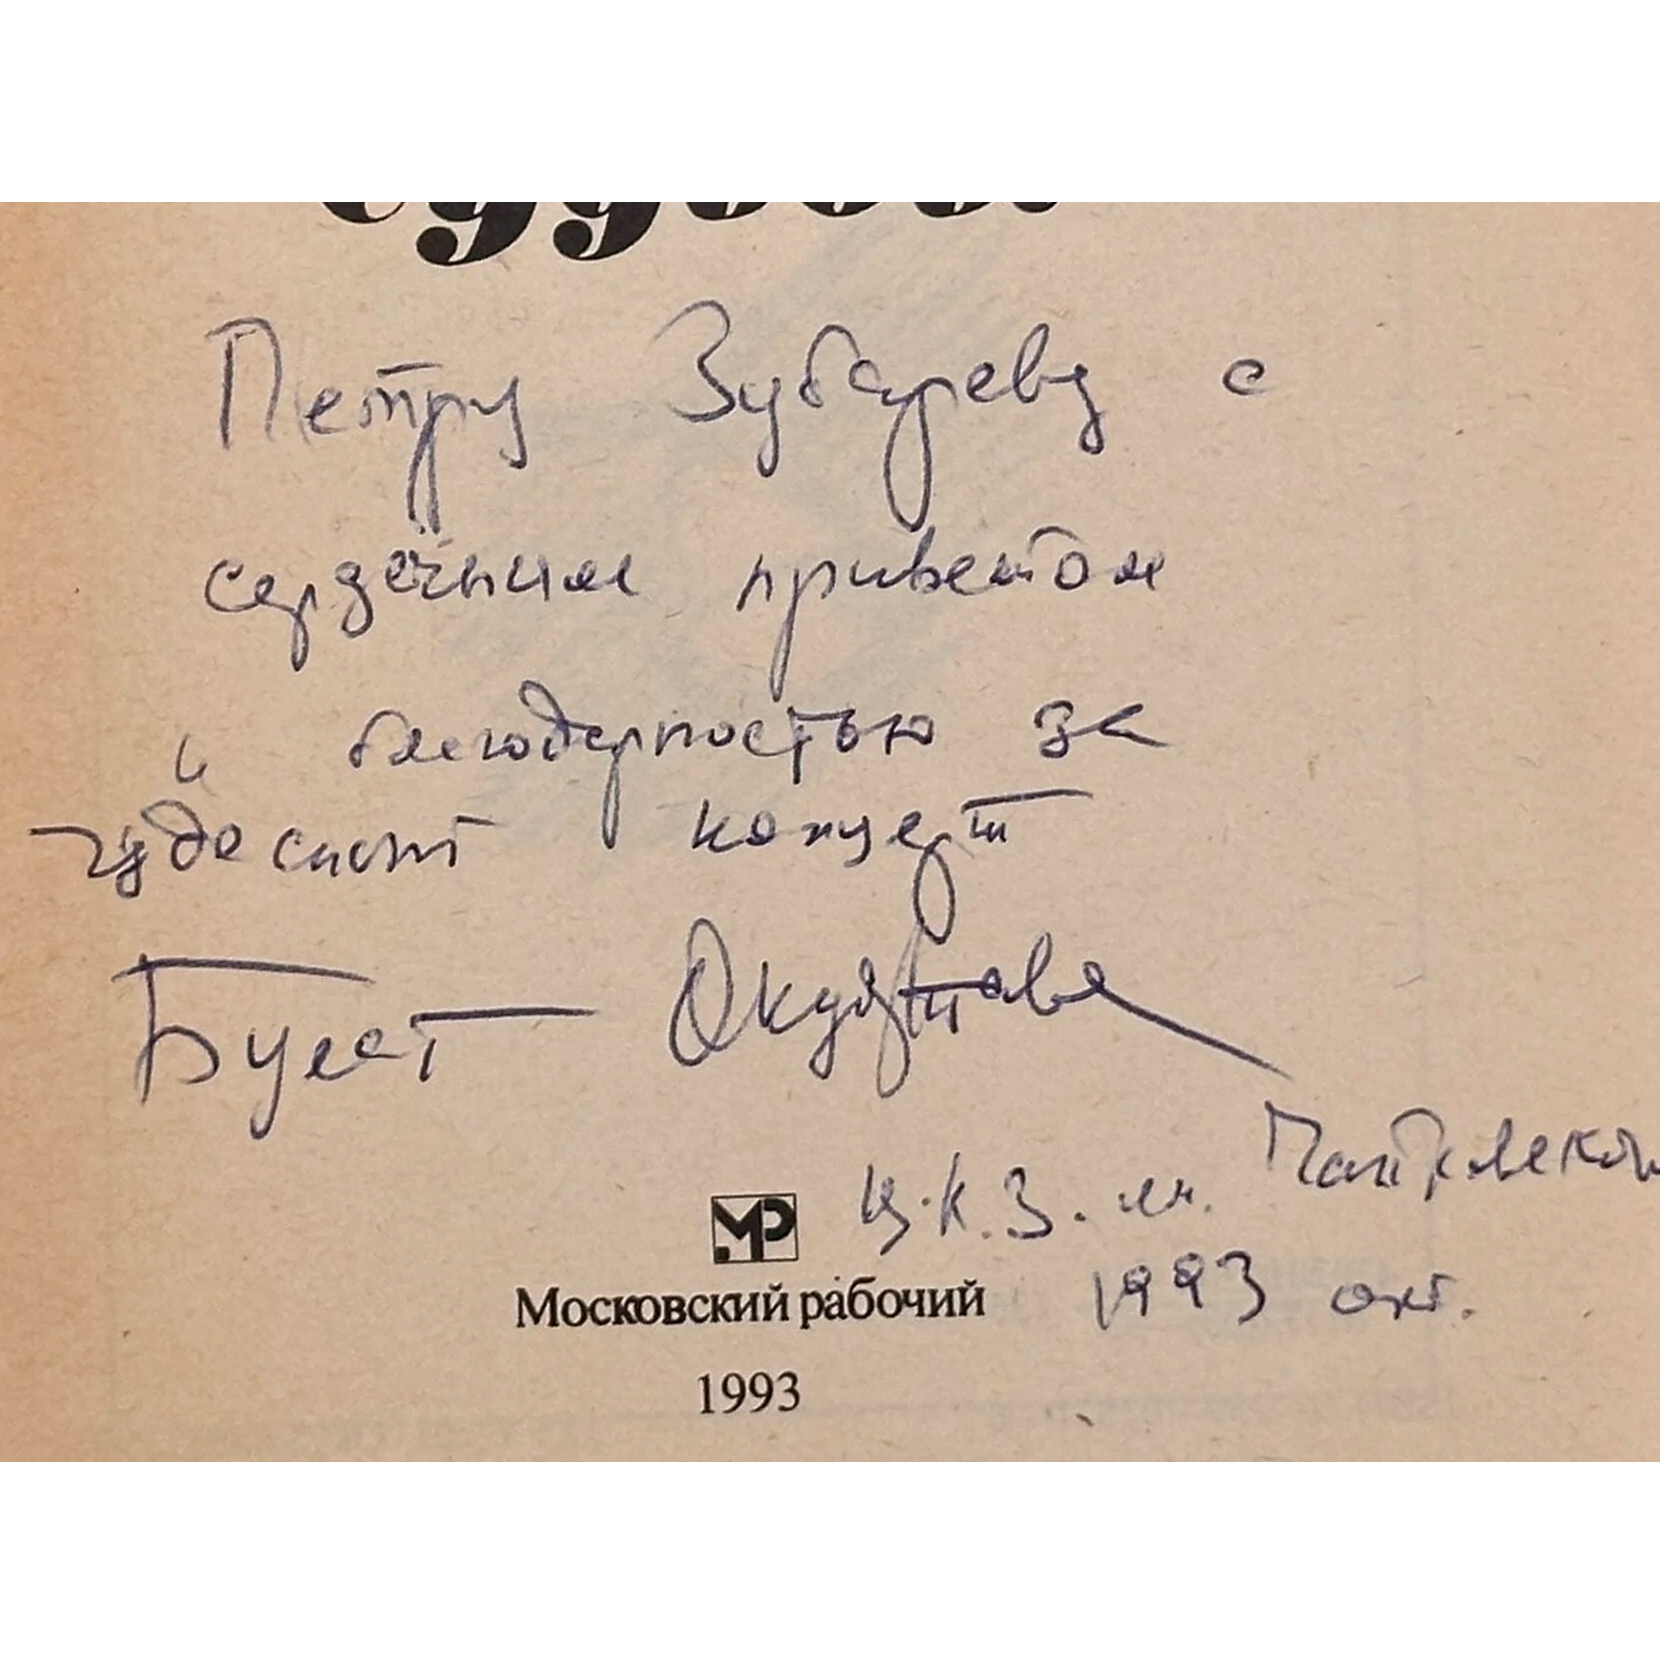 Петру Зубареву с
сердечным приветом
и благодарностью за
чудесный концерт
Булат Окуджава
Ц.К.З. им. Чайковского
1993 окт.
МР
Московский рабочий
1993